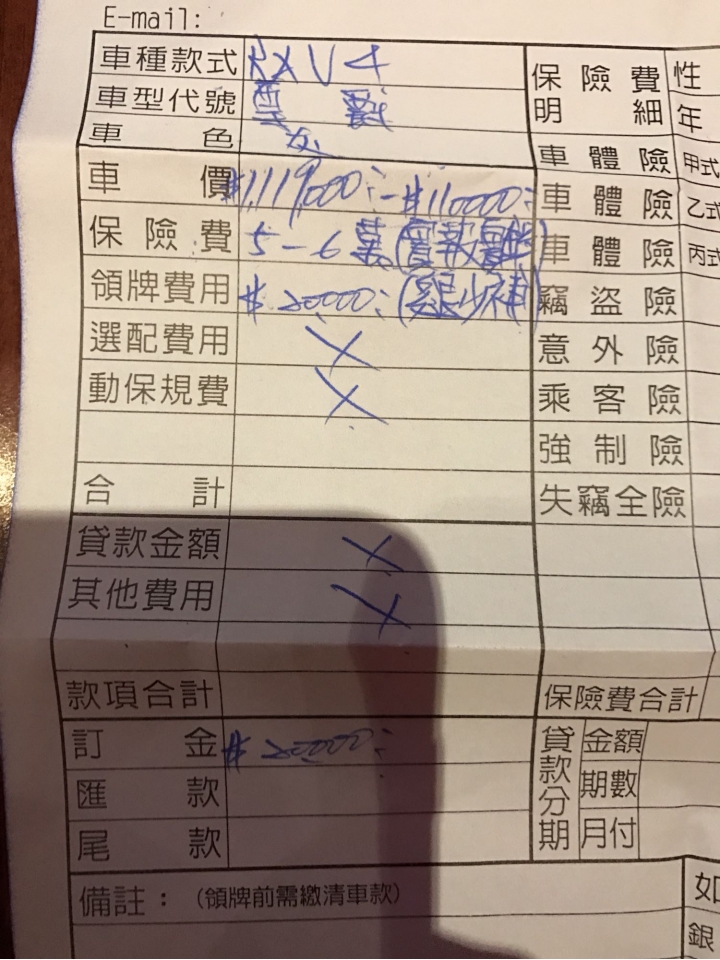 E-mail:
車種款式 RAV4
保險費明細 性
車型代號 尊爵
年
車色 灰
車體險 甲式
車價 $1,119,000:- $110000:
車體險 乙式
保險費 5-6萬(實報實銷)
車體險 丙式
領牌費用 $20,000:(多退少補)
竊盜險
選配費用 X
意外險
動保規費 X
乘客險
強制險
合計
失竊全險
貸款金額 X
其他費用 X
款項合計
保險費合計
訂金 $20,000:
貸款分期 金額
匯款
期數
尾款
月付
備註:(領牌前需繳清車款)
如
銀